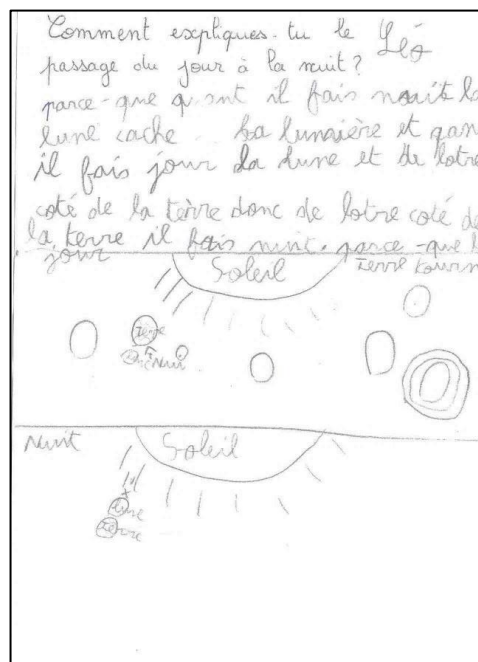 Comment expliques-tu le Léo
passage du jour à la nuit ?
parce-que quant il fais nuit la
lune cache la lumière et quan
il fais jour la lune et de lotre
coté de la tèrre donc de lotre coté de
la terre il fais nuit. parce-que la
jour Soleil terre tourn
Tèrre
lune Nuit
nuit Soleil
lune
terre